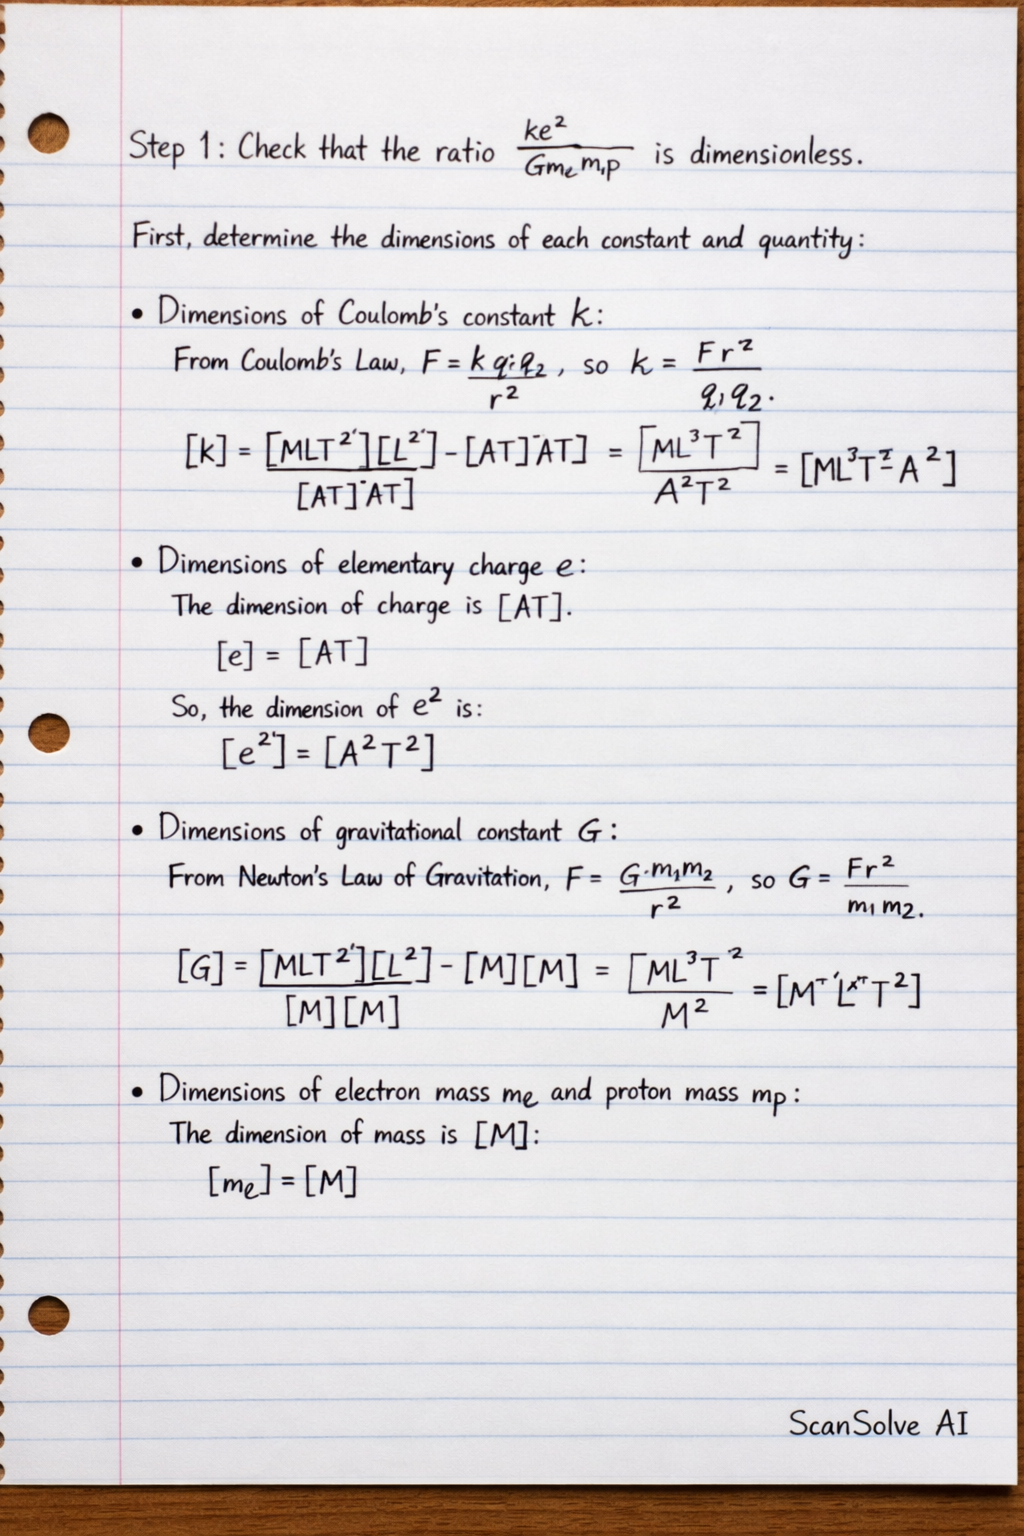 Step 1: Check that the ratio ke²/Gmₑmıp is dimensionless.
First, determine the dimensions of each constant and quantity:
• Dimensions of Coulomb's constant k:
From Coulomb's Law, F = k q₁q₂/r², so k = Fr²/q₁q₂.
[k] = [MLT²'][L²']/[AT]¨AT] - [AT]¨AT] = [ML³T²]/A²T² = [ML³T A²]
• Dimensions of elementary charge e:
The dimension of charge is [AT].
[e] = [AT]
So, the dimension of e² is:
[e²'] = [A²T²]
• Dimensions of gravitational constant G:
From Newton's Law of Gravitation, F = G·m₁m₂/r², so G = Fr²/m₁m₂.
[G] = [MLT²'][L²]/[M][M] - [M][M] = [ML³T ˙²/M² = [M L T²]
• Dimensions of electron mass mₑ and proton mass mp:
The dimension of mass is [M]:
[mₑ] = [M]
ScanSolve AI